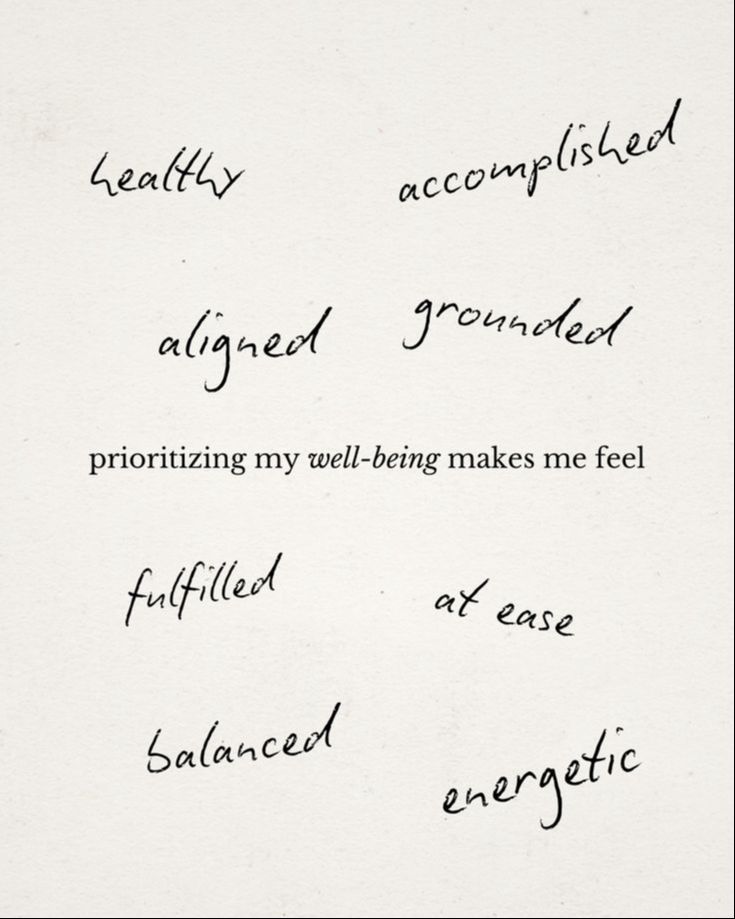 healthy
accomplished
aligned
grounded
prioritizing my well-being makes me feel
fulfilled
at ease
balanced
energetic